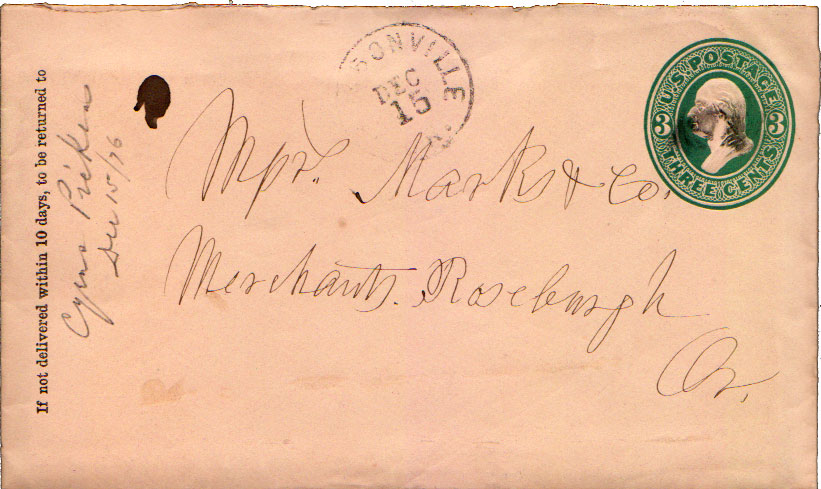 If not delivered within 10 days, to be returned to
Dec 15/76
SONVILLE
DEC
15
U.S. POSTAGE
3 3
THREE CENTS
Marks & Co.
Merchants. Roseburgh
Or.